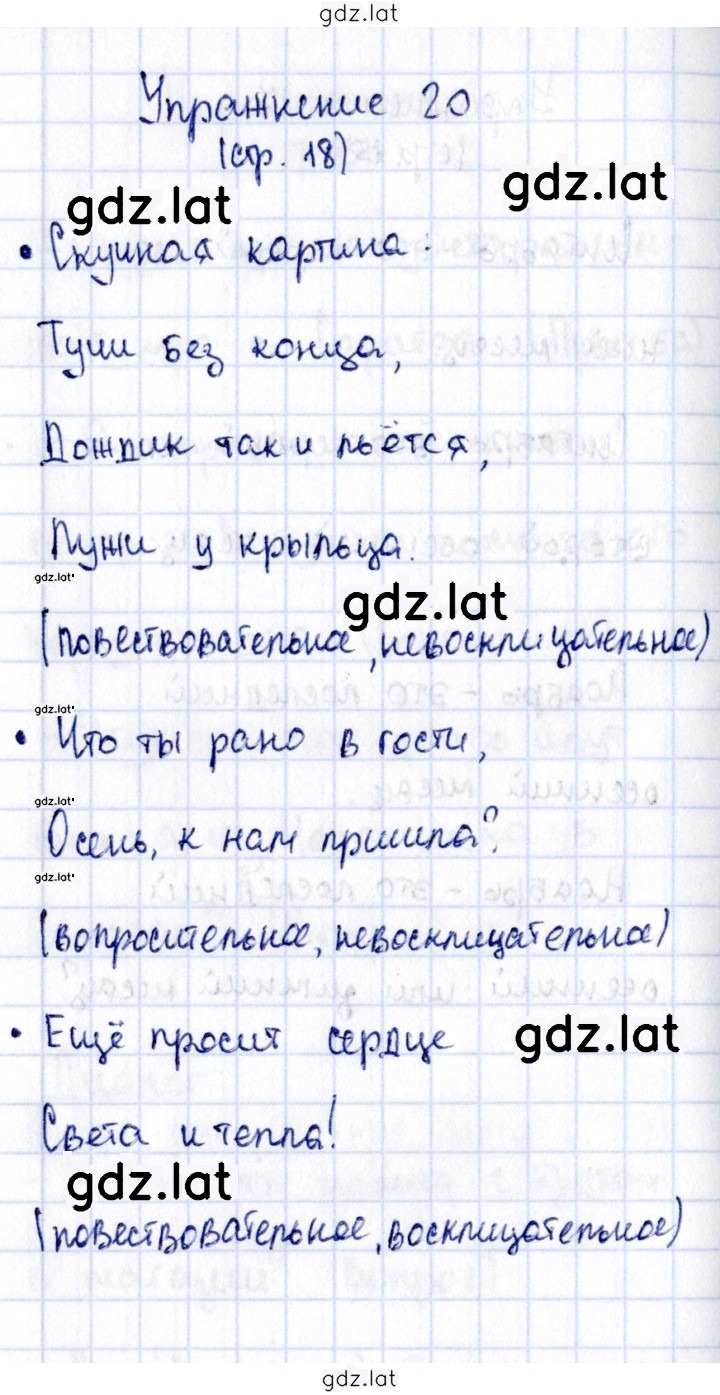 gdz.lat
Упражнение 20
(стр. 18)
gdz.lat
gdz.lat
• Скучная картина:
Тучи без конца,
Дождик так и льётся,
Лужи у крыльца.
gdz.lat
gdz.lat
(повествовательное, невосклицательное)
gdz.lat
• Что ты рано в гости,
gdz.lat
Осень, к нам пришла?
gdz.lat
(вопросительное, невосклицательное)
• Ещё просит сердце
gdz.lat
Света и тепла!
gdz.lat
(повествовательное, восклицательное)
gdz.lat